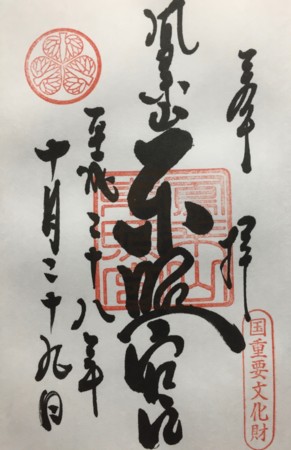 奉拝
国重要文化財
鳳来山東照宮
平成二十八年
十月二十九日